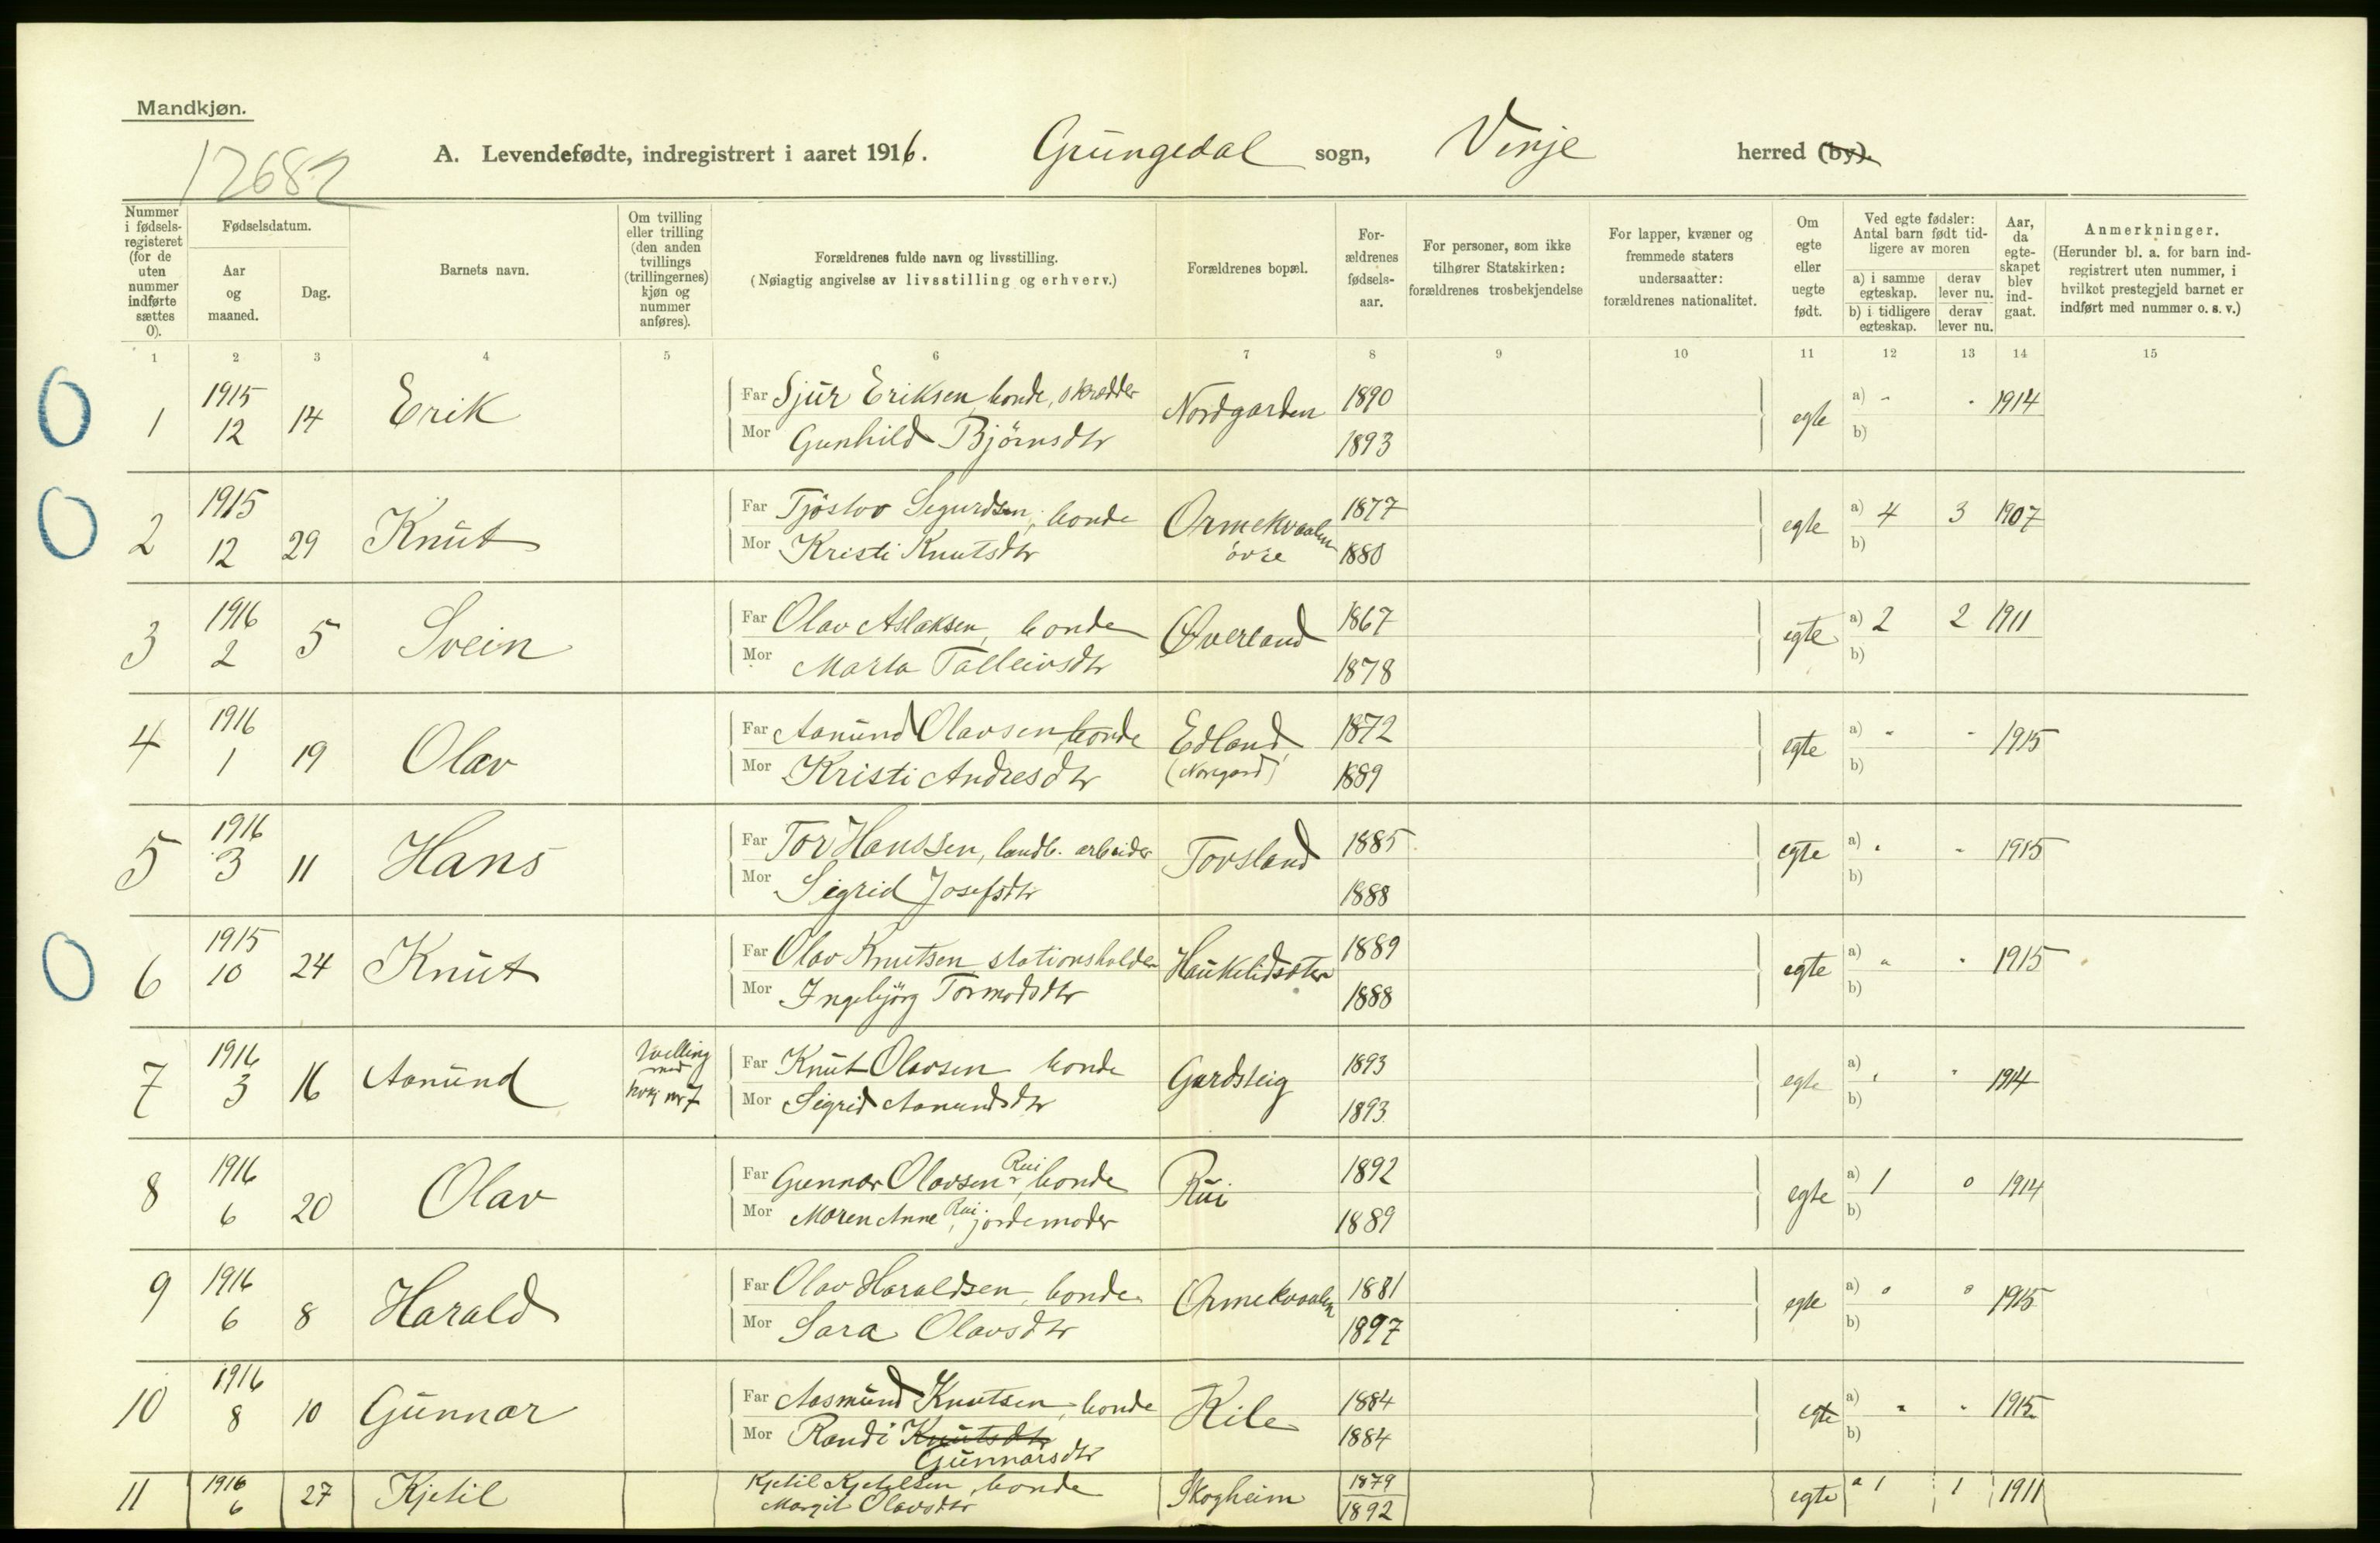 Mandkjøn.
12682
A. Levendefødte, indregistrert i aaret 1916. Grungedal sogn, Vinje herred (by).
Nummer i fødselsregisteret (for de uten nummer indførte sættes 0).
Fødselsdatum.
Aar og maaned.
Dag.
Barnets navn.
Om tvilling eller trilling (den anden tvillings (trillingernes) kjøn og nummer anføres).
Forældrenes fulde navn og livsstilling.
(Nøiagtig angivelse av livsstilling og erhverv.)
Forældrenes bopæl.
Forældrenes fødselsaar.
For personer, som ikke tilhører Statskirken: forældrenes trosbekjendelse
For lapper, kvæner og fremmede staters undersaatter: forældrenes nationalitet.
Om egte eller uegte født.
Ved egte fødsler: Antal barn født tidligere av moren
a) i samme egteskap. derav lever nu.
b) i tidligere egteskap. derav lever nu.
Aar, da egteskapet blev indgaat.
Anmerkninger.
(Herunder bl. a. for barn indregistrert uten nummer, i hvilket prestegjeld barnet er indført med nummer o. s. v.)
1 2 3 4 5 6 7 8 9 10 11 12 13 14 15
0 1 1915 12 14 Erik Far Sjur Eriksen, bonde, skrædder Nordgarden 1890 egte a) - - 1914
Mor Gunhild Bjørnsdtr 1893 b)
0 2 1915 12 29 Knut Far Tjöstov Sigurdsen, bonde Ormekvaalen övre 1877 egte a) 4 3 1907
Mor Kristi Knutsdtr 1880 b)
3 1916 2 5 Svein Far Olav Aslaksen, bonde Øverland 1867 egte a) 2 2 1911
Mor Marta Talleivsdtr 1878 b)
4 1916 1 19 Olav Far Aanund Olavsen bonde Edland (Norgard) 1872 egte a) " - 1915
Mor Kristi Andresdtr 1889 b)
5 1916 3 11 Hans Far Tor Hanssen, landb. arbeider Tovsland 1885 egte a) " " 1915
Mor Sigrid Josefsdtr 1888 b)
0 6 1915 10 24 Knut Far Olav Knutsen stationsholder Haukelidsæter 1889 egte a) " " 1915
Mor Ingebjörg Tormodsdtr 1888 b)
7 1916 3 16 Aanund tvilling med kvkj nr 7 Far Knut Olavsen bonde Gardsteig 1893 egte a) " " 1914
Mor Sigrid Aanundsdtr 1893 b)
8 1916 6 20 Olav Far Gunnar Olavsen Rui, bonde Rui 1892 egte a) 1 0 1914
Mor Maren Anne Rui, jordemoder 1889 b)
9 1916 6 8 Harald Far Olav Haraldsen, bonde Ormekvaalen 1881 egte a) 0 0 1915
Mor Sara Olavsdtr 1897 b)
10 1916 8 10 Gunnar Far Aasmund Knutsen, bonde Kile 1884 egte a) " " 1915
Mor Randi Knutsdtr 1884 b)
Gunnarsdtr
11 1916 6 27 Kjetil Kjetil Kjetilsen, bonde Skogheim 1879 egte a 1 1 1911
Margit Olavsdtr 1892